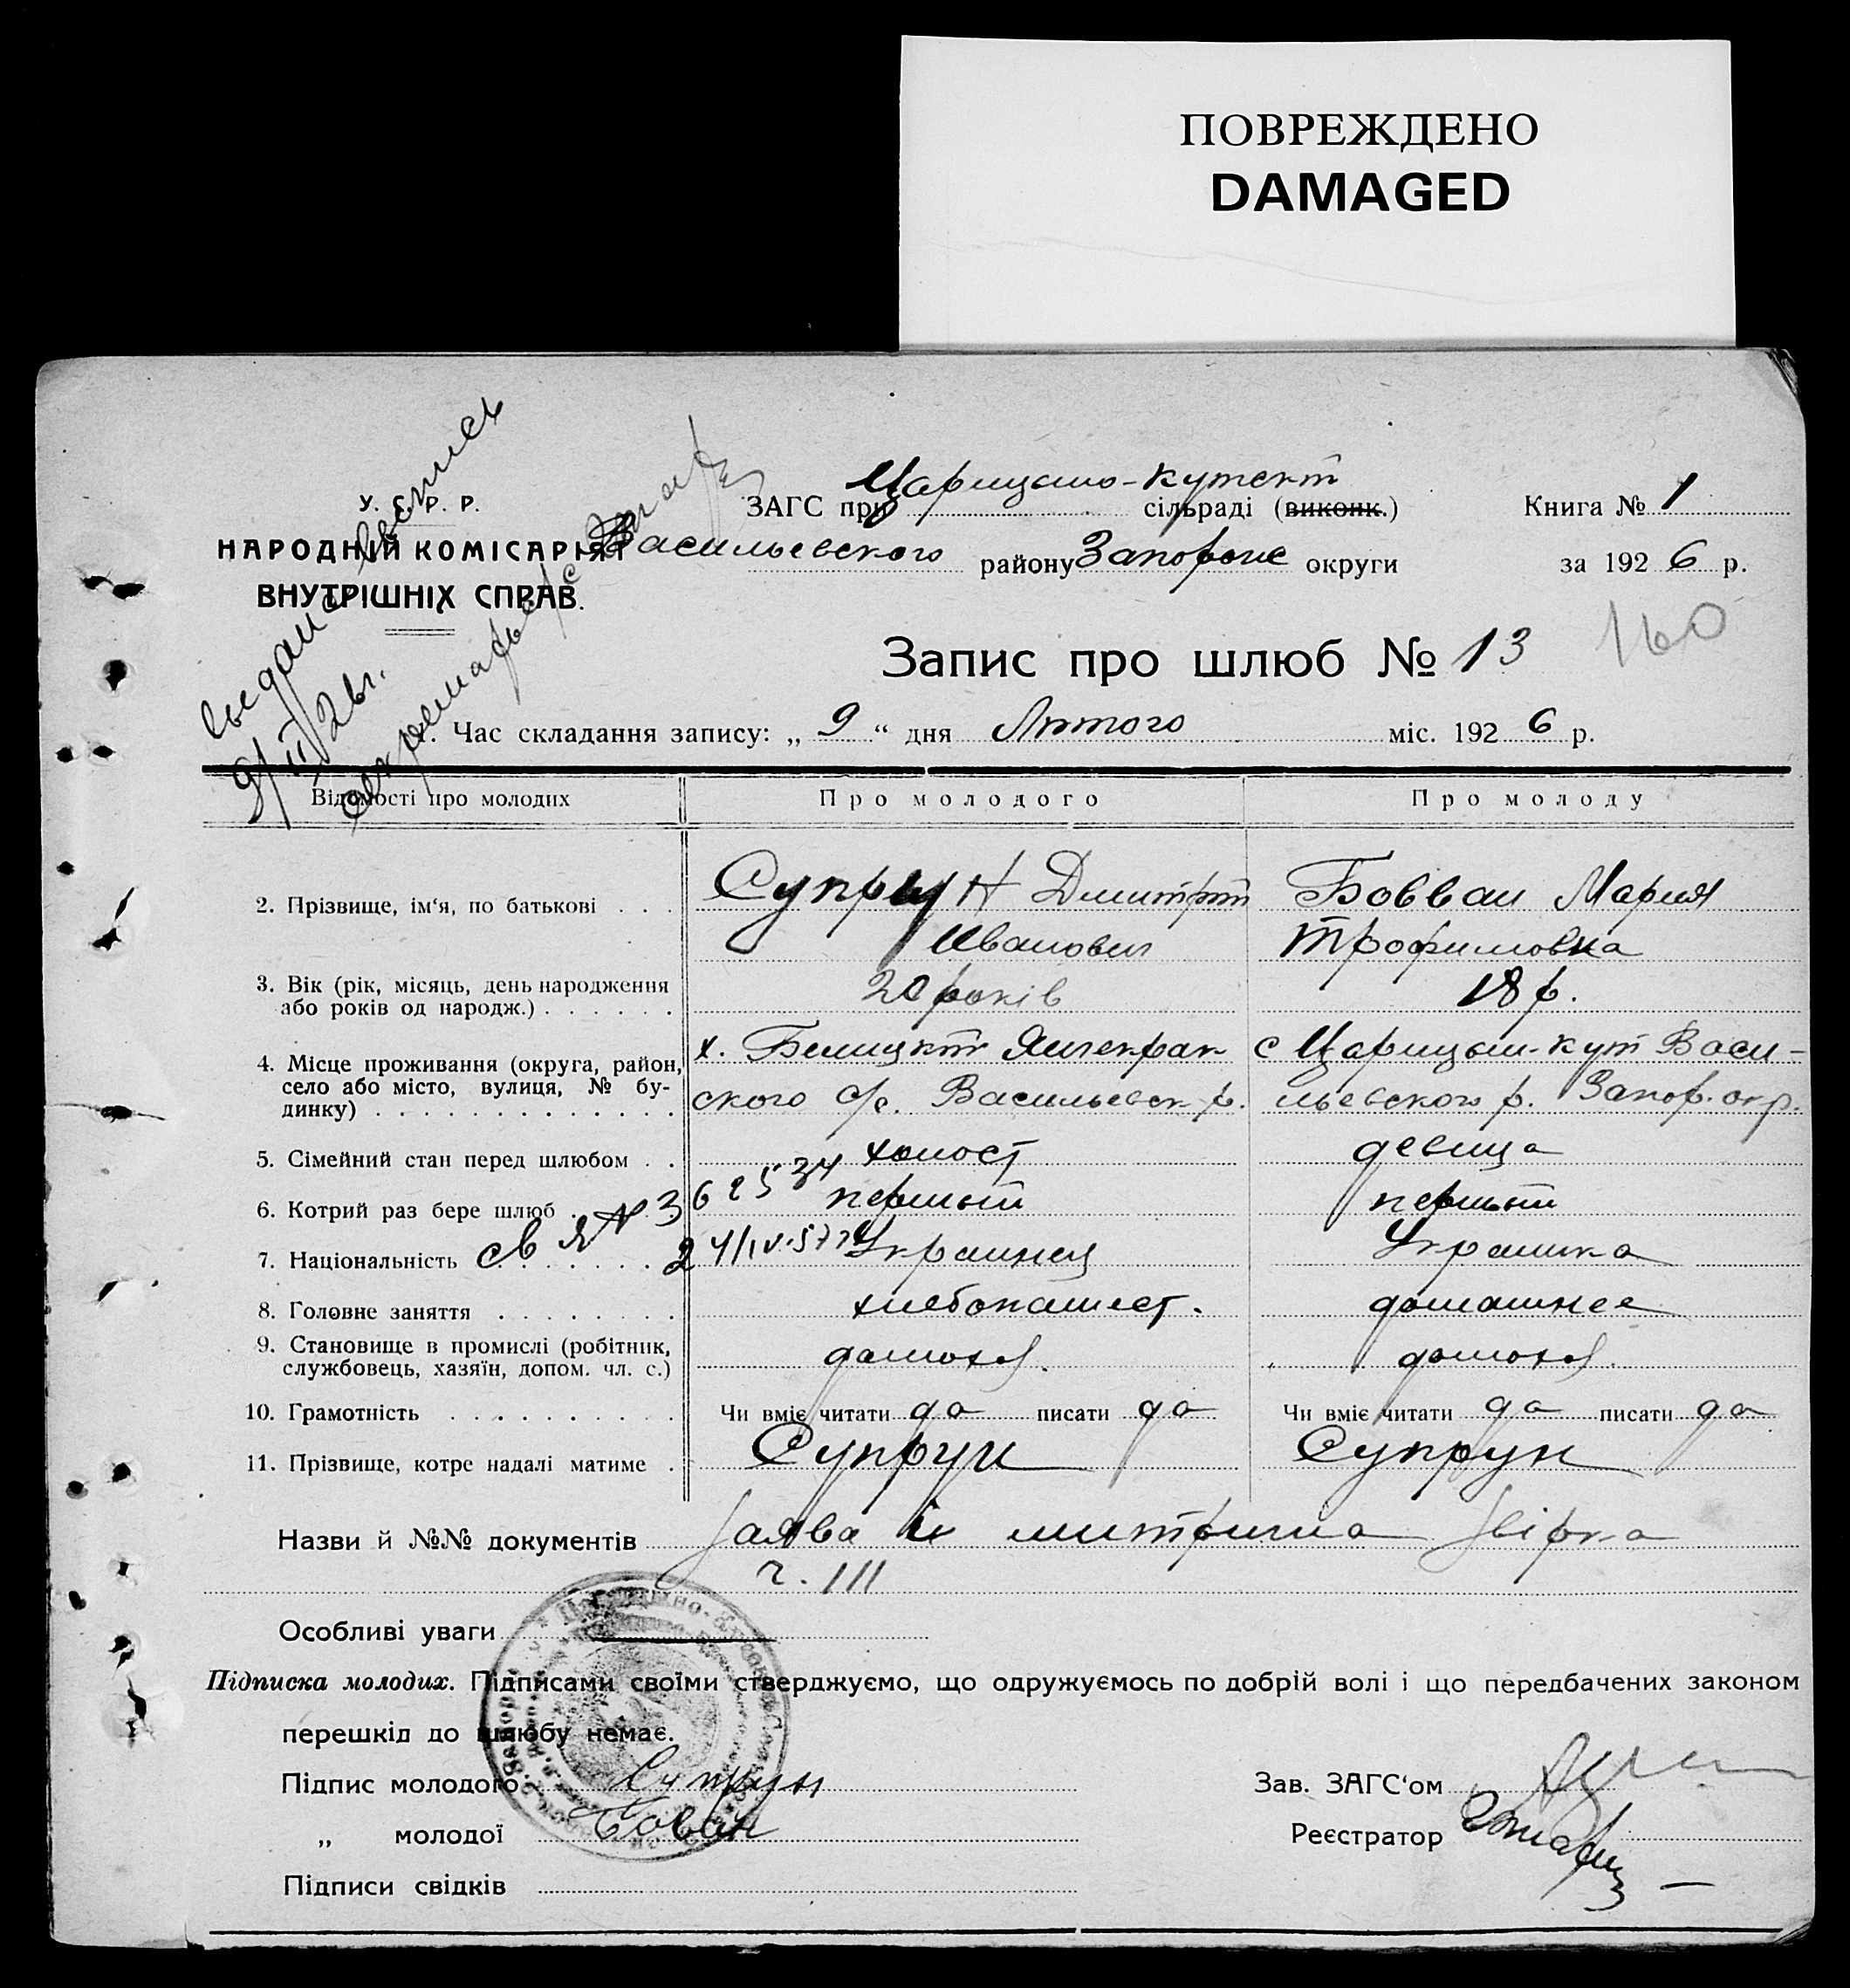 ПОВРЕЖДЕНО
DAMAGED
У. С. Р. Р.
НАРОДНІЙ КОМІСАРІЯТ
ВНУТРІШНІХ СПРАВ.
ЗАГС при Царицыно-Кутскт сільраді (виконк.)
Васильевского району Запорож округи
Книга № 1
за 1926 р.
Запис про шлюб № 13
160
9/II 26г.
1. Час складання запису: „ 9 “ дня Лютого міс. 1926 р.
Відомості про молодих Про молодого Про молоду
2. Прізвище, ім‘я, по батькові . . . Супрун Дмитрт Бовван Мария
Иванович Трофимовна
3. Вік (рік, місяць, день народження
або років од народж.) . . . . . . 20 років 18 р.
4. Місце проживання (округа, район, х. с Царицын-Кут Васи-
село або місто, вулиця, № бу- ского с/с. Васильевск р. льевского р. Запор. окр.
динку) . . . . . . . . . . . . .
5. Сімейний стан перед шлюбом . . холост девица
6. Котрий раз бере шлюб . первый первый
7. Національність . . . . . . . Украинец Украинка
8. Головне заняття . . . . . . . . хлебопашест. домашнее
9. Становище в промислі (робітник,
службовець, хазяїн, допом. чл. с.) домохоз. домохоз.
10. Грамотність . . . . . . . . . . Чи вміє читати да писати да Чи вміє читати да писати да
11. Прізвище, котре надалі матиме . Супрун Супрун
Назви й №№ документів Заява й митрична звірка
г. III
Особливі уваги
Підписка молодих. Підписами своїми стверджуємо, що одружуємось по добрій волі і що передбачених законом
перешкід до шлюбу немає.
Підпис молодого Супрун Зав. ЗАГС‘ом
„ молодої Бован Реєстратор
Підписи свідків